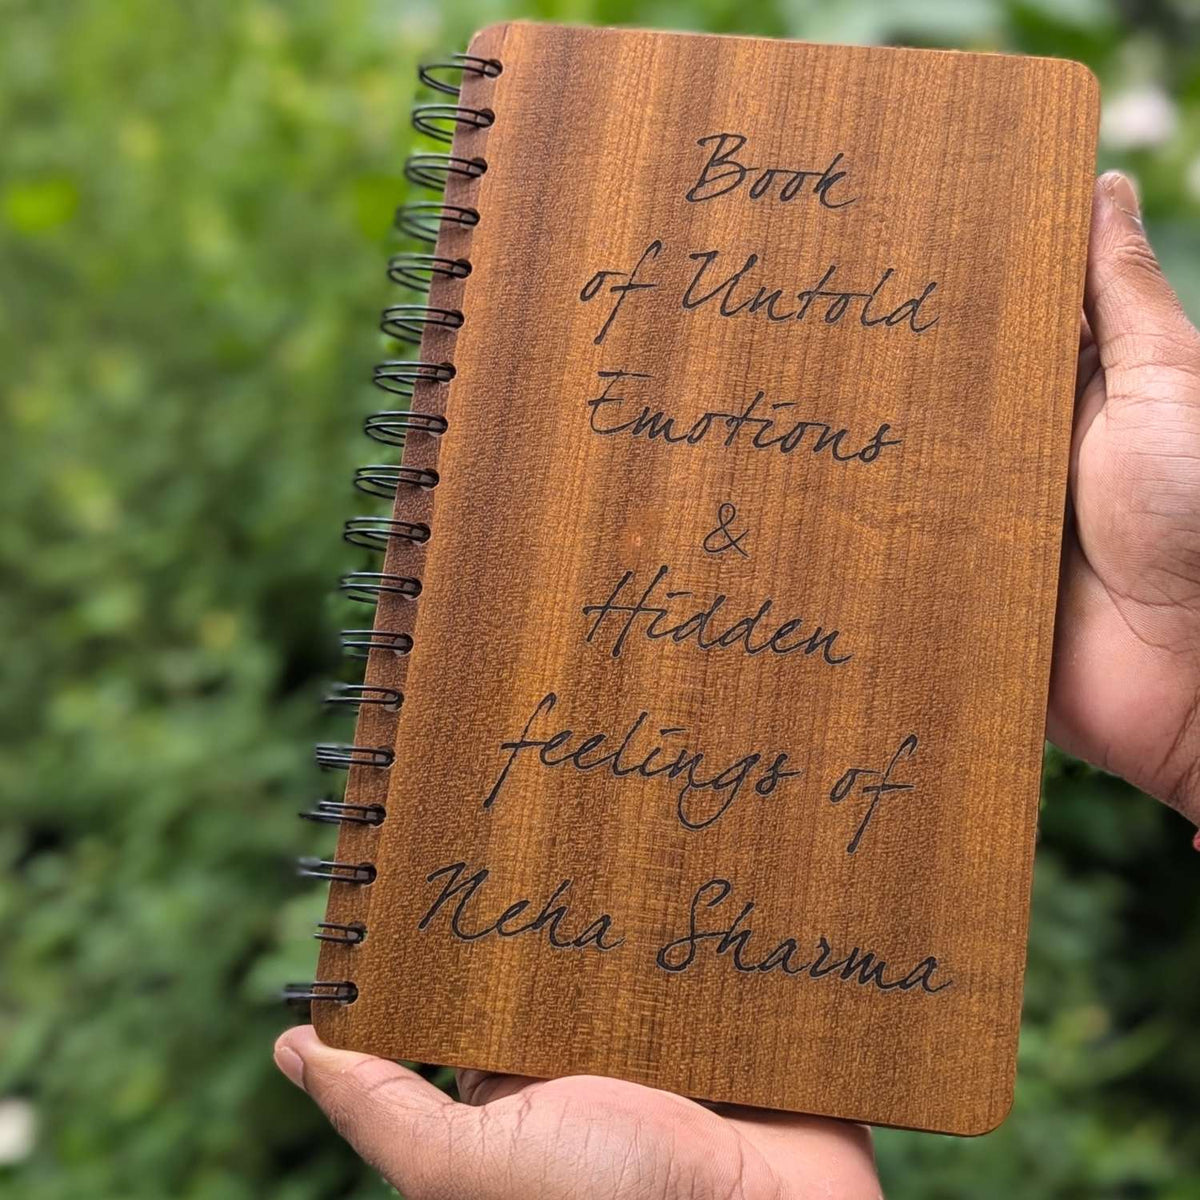 Book
of Untold
Emotions
&
Hidden
feelings of
Neha Sharma